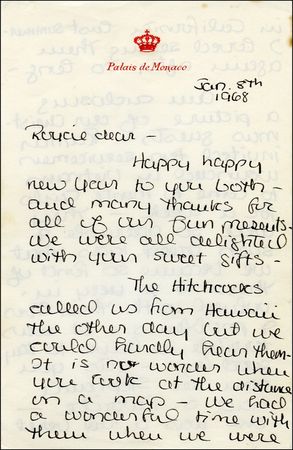 Palais de Monaco
Jan. 8th
1968
dear -
Happy happy
new Year to you both
and many thanks for
all of our fun presents -
we were all delighted
with your sweet gifts -
The Hitchcocks
called us from Hawaii
the other day but we
could hardly hear them -
It is no wonder when
you look at the distance
on a map - We had
a wonderful time with
them when we were